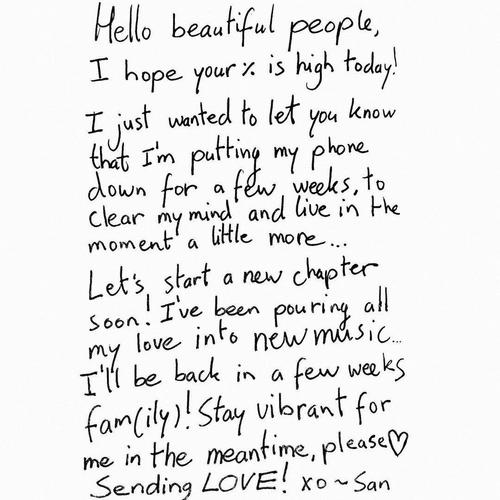 Hello beautiful people,
I hope your % is high today!
I just wanted to let you know
that I'm putting my phone
down for a few weeks, to
clear my mind and live in the
moment a little more...
Let's start a new chapter
soon! I've been pouring all
my love into new music...
I'll be back in a few weeks
fam(ily)! Stay vibrant for
me in the meantime, please♡
Sending LOVE! xo ~ San